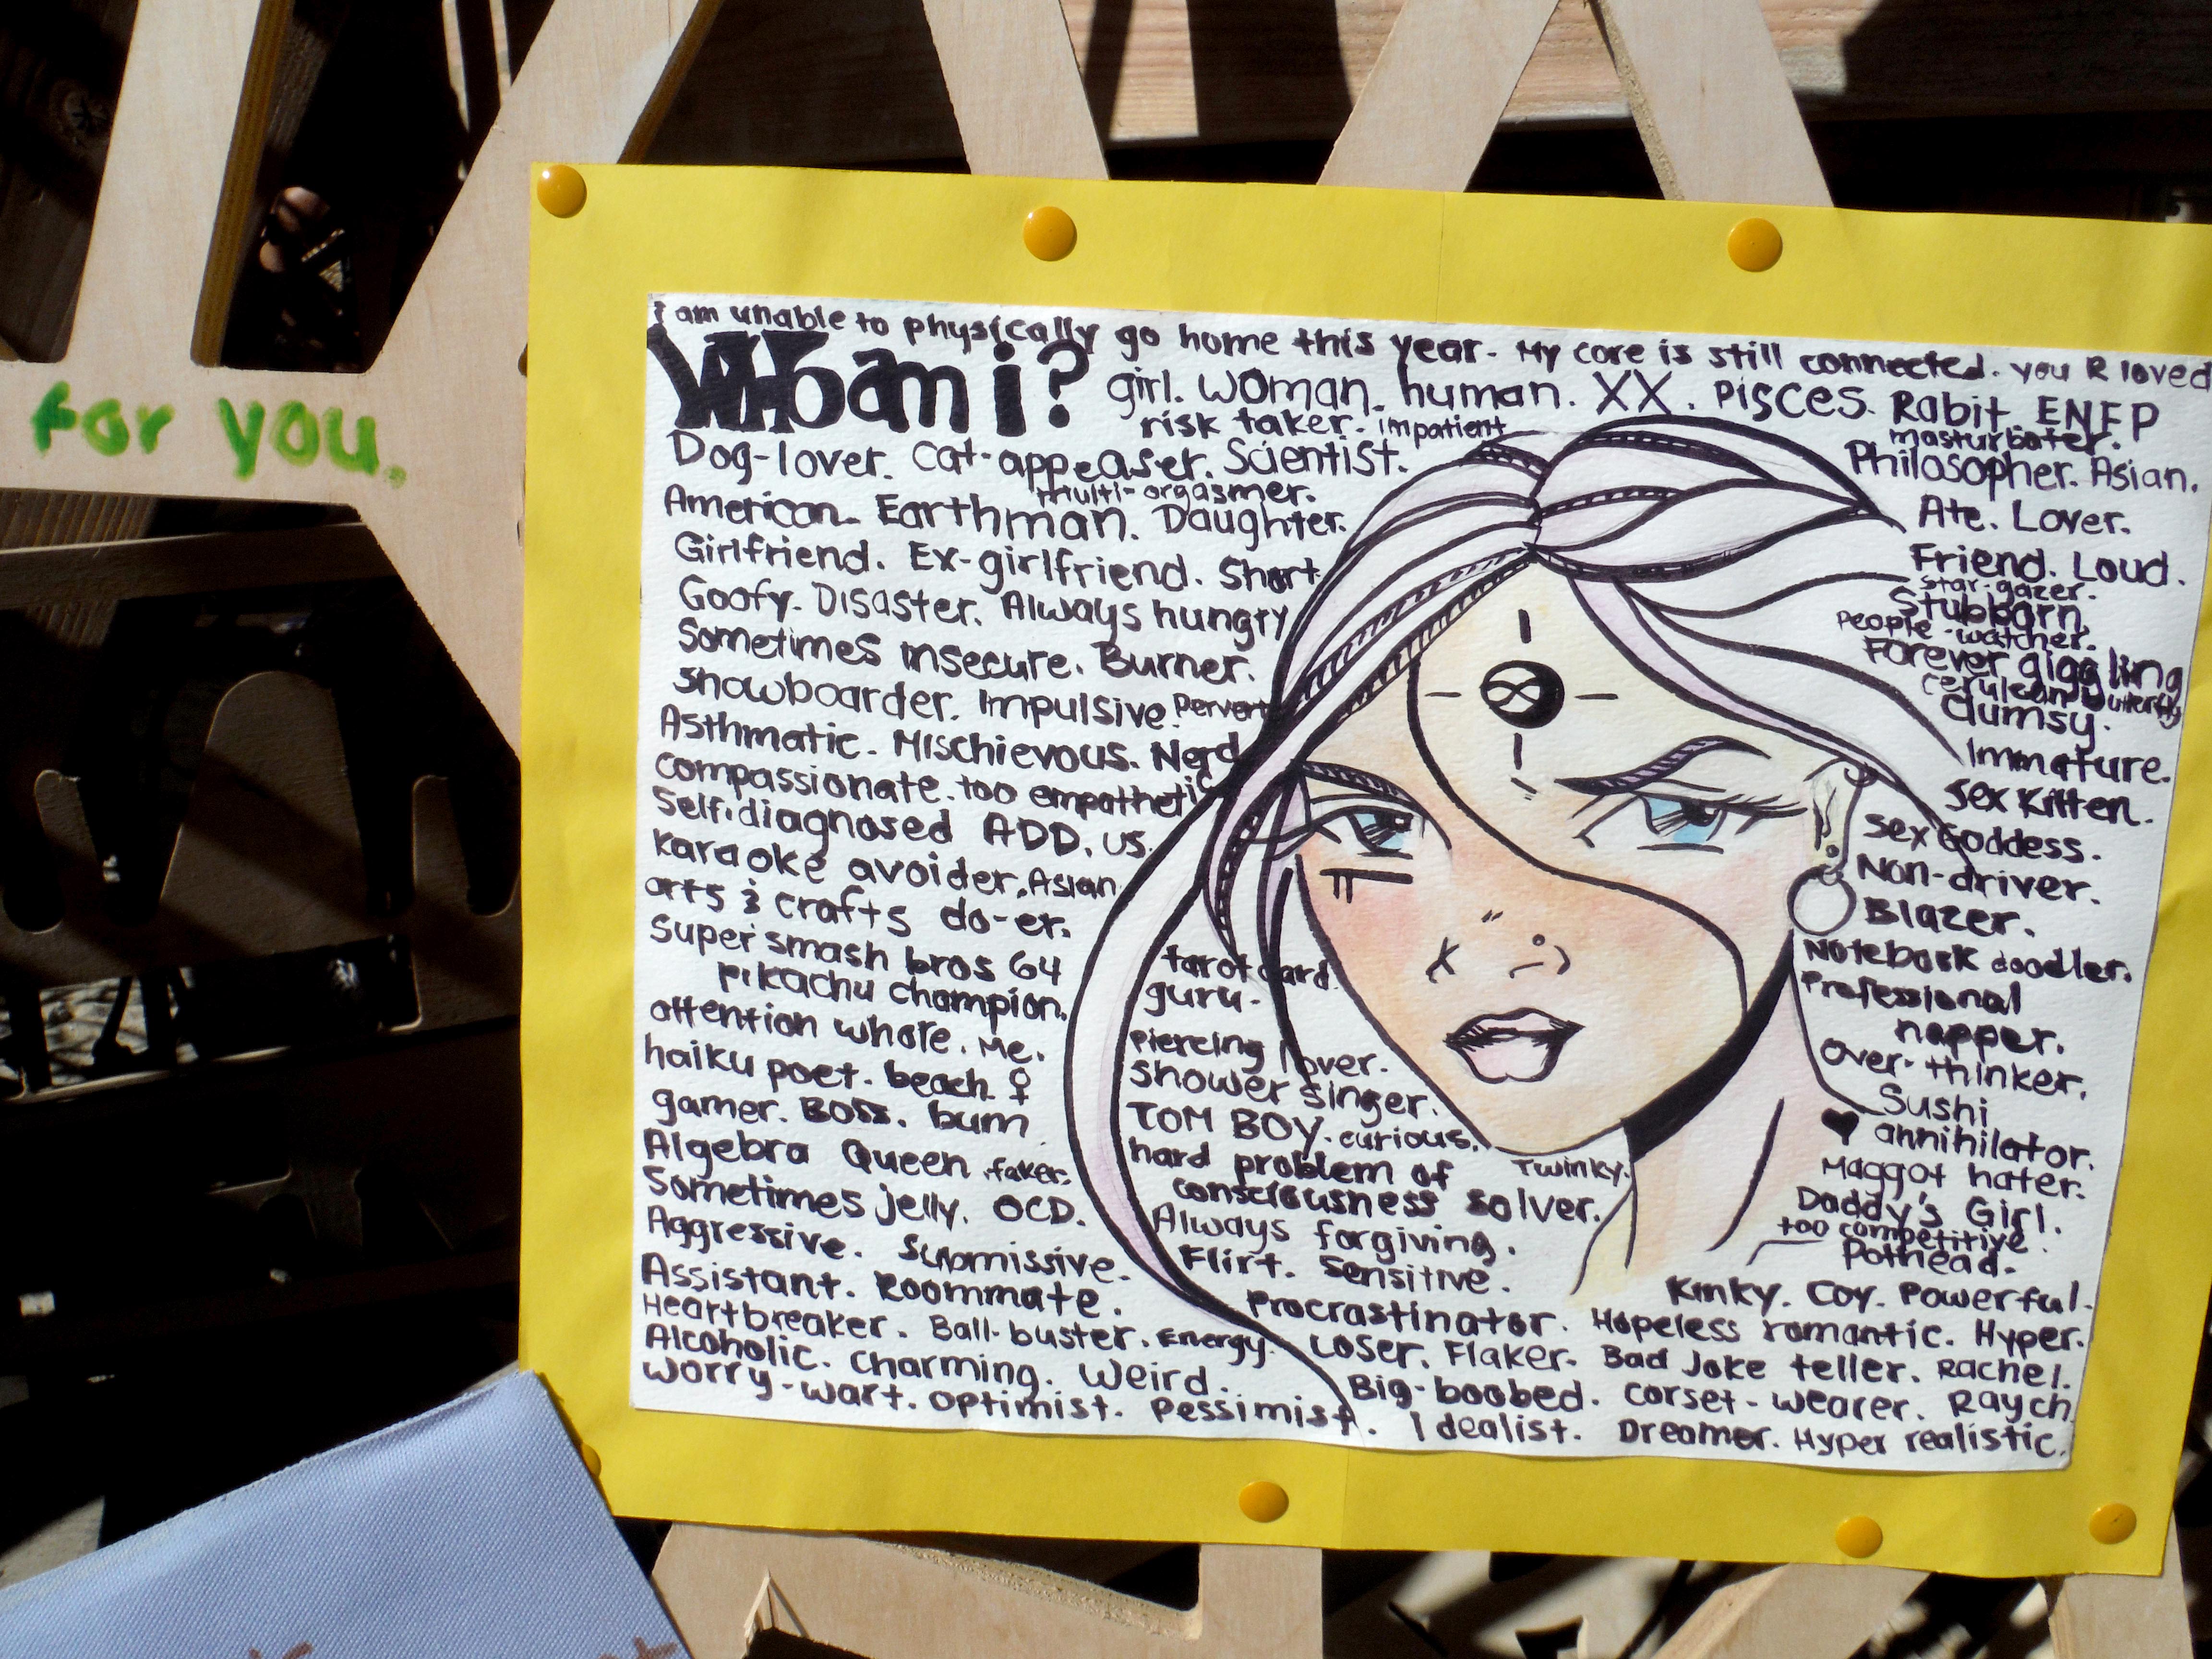 for you.
i am unable to physically go home this year. My core is still connected. you R loved
WHo am i? girl. woman. human. XX. Pisces. Rabit. ENFP
risk taker. impatient
masturbater.
Dog-lover. Cat-appeaser. Scientist.
Philosopher. Asian.
multi-orgasmer.
American. Earthman. Daughter.
Ate. Lover.
Girlfriend. Ex-girlfriend. Short.
Friend. Loud.
star-gazer.
Goofy. Disaster. Always hungry
Stubborn.
People-watcher.
Sometimes insecure. Burner.
Forever giggling
cerulean butterfly
Snowboarder. Impulsive. Pervert
Clumsy.
Asthmatic. Mischievous. Nerd
Immature.
compassionate. too empathetic
Sex Kitten.
Self-diagnosed ADD. us.
Sex Goddess.
karaoke avoider. Asian.
Non-driver.
arts & crafts do-er.
Blazer.
Super smash bros 64
pikachu champion.
Notebook doodler.
Professional
napper.
attention whore. Me.
over-thinker.
haiku poet. beach ♀
Sushi
♥ annihilator.
gamer. Boss. bum
Maggot hater.
Algebra Queen. faker.
Daddy's Girl.
too competitive.
Sometimes jelly. OCD.
Pothead.
Aggressive. Submissive.
Assistant. Roommate.
Heartbreaker. Ball-buster. Energy.
Alcoholic. Charming. Weird.
Worry-wart. Optimist. Pessimist. Idealist. Dreamer. Hyper realistic.
tarot card
guru.
piercing lover.
shower singer.
TOM BOY. curious.
hard problem of
consciousness solver.
Twinky.
Always forgiving.
Flirt. Sensitive.
Kinky. Coy. Powerful.
Procrastinator. Hopeless romantic. Hyper.
Loser. Flaker. Bad Joke teller. Rachel.
Big-boobed. Corset-wearer. Raych